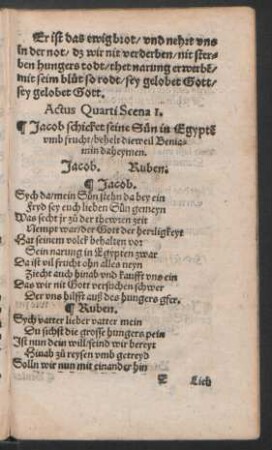 Er ist das ewig brot/ vnd nehrt vns
in der not/ dz wir nit verderben/ nit ster-
ben hungers todt/ thet narung erwerbē/
mit seim blůt so rodt/ sey gelobet Gott/
sey gelobet Gott.
Actus Quarti Scena I.
¶ Jacob schicket seine Sůn in Egyptē
vmb frucht/ behelt dieweil Benia-
min daheymen.
Jacob. Ruben.
¶ Jacob.
Sych da/ mein Sůn stehn da bey ein
Fryd sey euch lieben Sůn gemeyn
Was secht jr zů der thewren zeit
Nempt war/ der Gott der herligkeyt
Hat seinem volck behalten vor
Sein narung in Egypten zwar
Da ist vil frucht ohn alles neyn
Ziecht auch hinab vnd kaufft vns ein
Das wir nit Gott versuchen schwer
Der vns hilfft auß des hungers gfer.
¶ Ruben.
Sych vatter lieber vatter mein
Du sichst die grosse hungers pein
Ist nun dein will/ seind wir bereyt
Hinab zů reysen vmb getreyd
Solln wir nun mit einander hin
Lieb